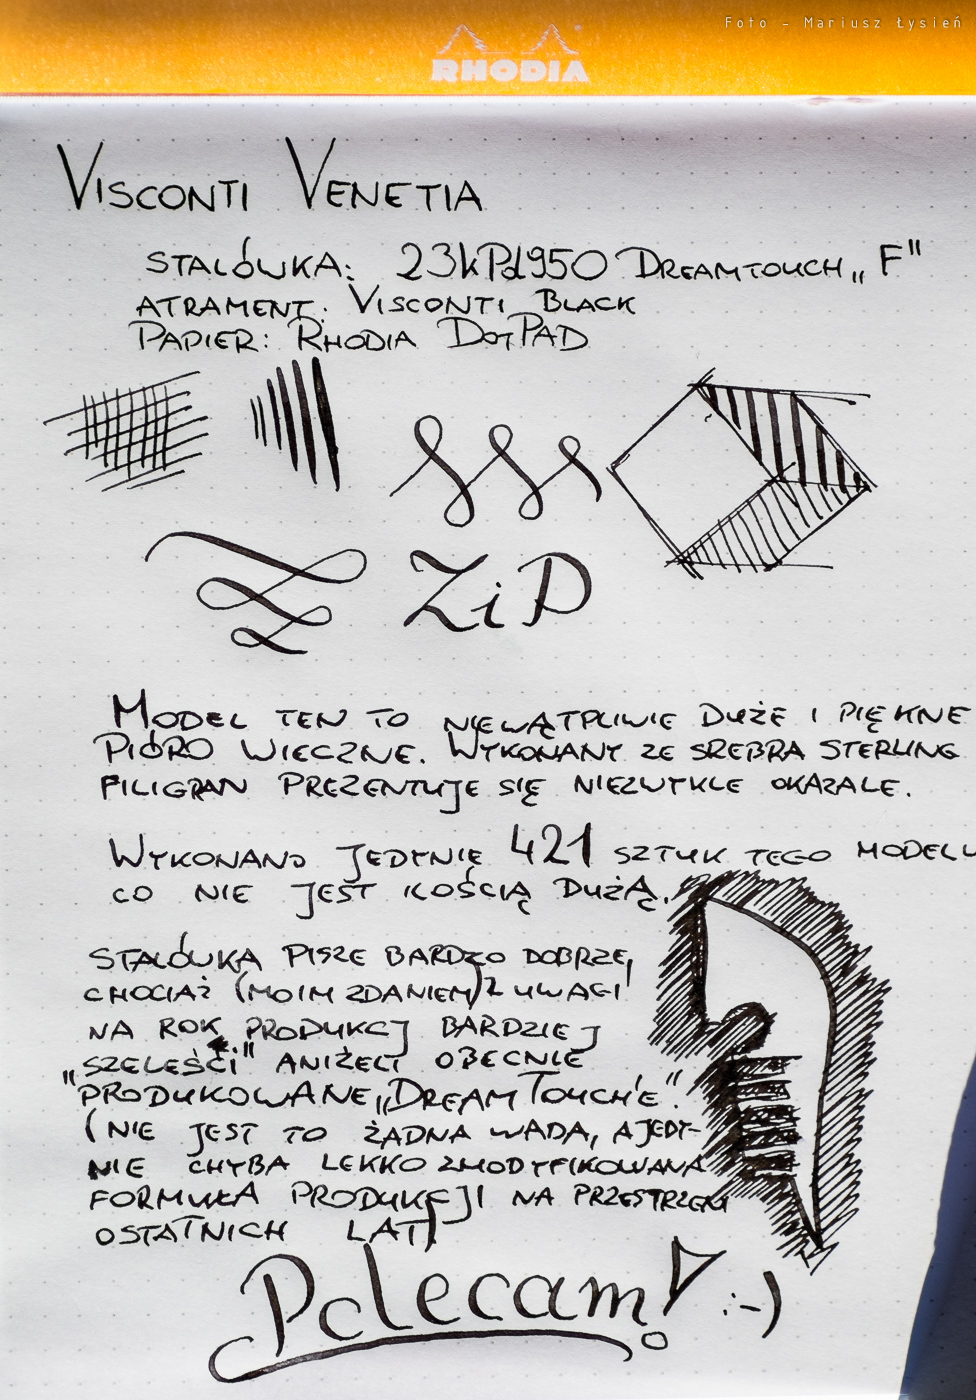 Foto - Mariusz Łysień
RHODIA
VISCONTI VENETIA
STALÓWKA: 23kPd950 DREAMTOUCH „F"
ATRAMENT: VISCONTI BLACK
PAPIER: RHODIA DOTPAD
ZiP
MODEL TEN TO NIEWĄTPLIWIE DUŻE I PIĘKNE
PIÓRO WIECZNE. WYKONANY ZE SREBRA STERLING
FILIGRAN PREZENTUJE SIĘ NIEZWYKLE OKAZALE.
WYKONANO JEDYNIE 421 SZTUK TEGO MODELU
CO NIE JEST ILOŚCIĄ DUŻĄ.
STALÓWKA PISZE BARDZO DOBRZE,
CHOCIAŻ (MOIM ZDANIEM) Z UWAGI
NA ROK PRODUKCJ BARDZIEJ
„SZELEŚCI" ANIŻELI OBECNIE
PRODUKOWANE „DREAM TOUCH'E".
(NIE JEST TO ŻADNA WADA, A JEDY-
NIE CHYBA LEKKO ZMODYFIKOWANA
FORMUŁA PRODUKCJI NA PRZESTRZENI
OSTATNICH LAT)
Polecam! :-)